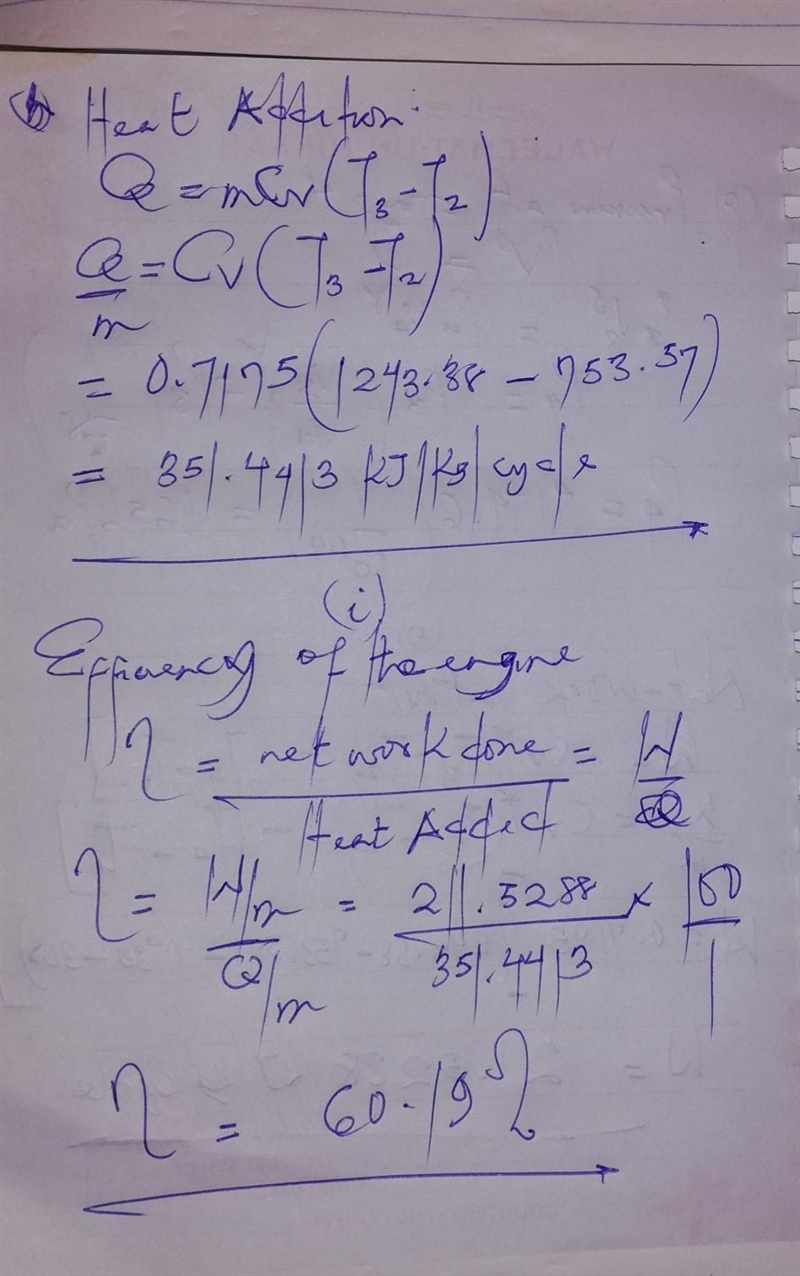 (b) Heat Addition:
Q = mCv(T3 - T2)
Q/m = Cv(T3 - T2)
= 0.7175(1243.38 - 753.57)
= 351.4413 KJ/Kg/cycle
(i)
Efficiency of the engine
η = net work done / Heat Added = W/Q
η = W/m / Q/m = 211.5288/351.4413 × 100/1
η = 60.19%